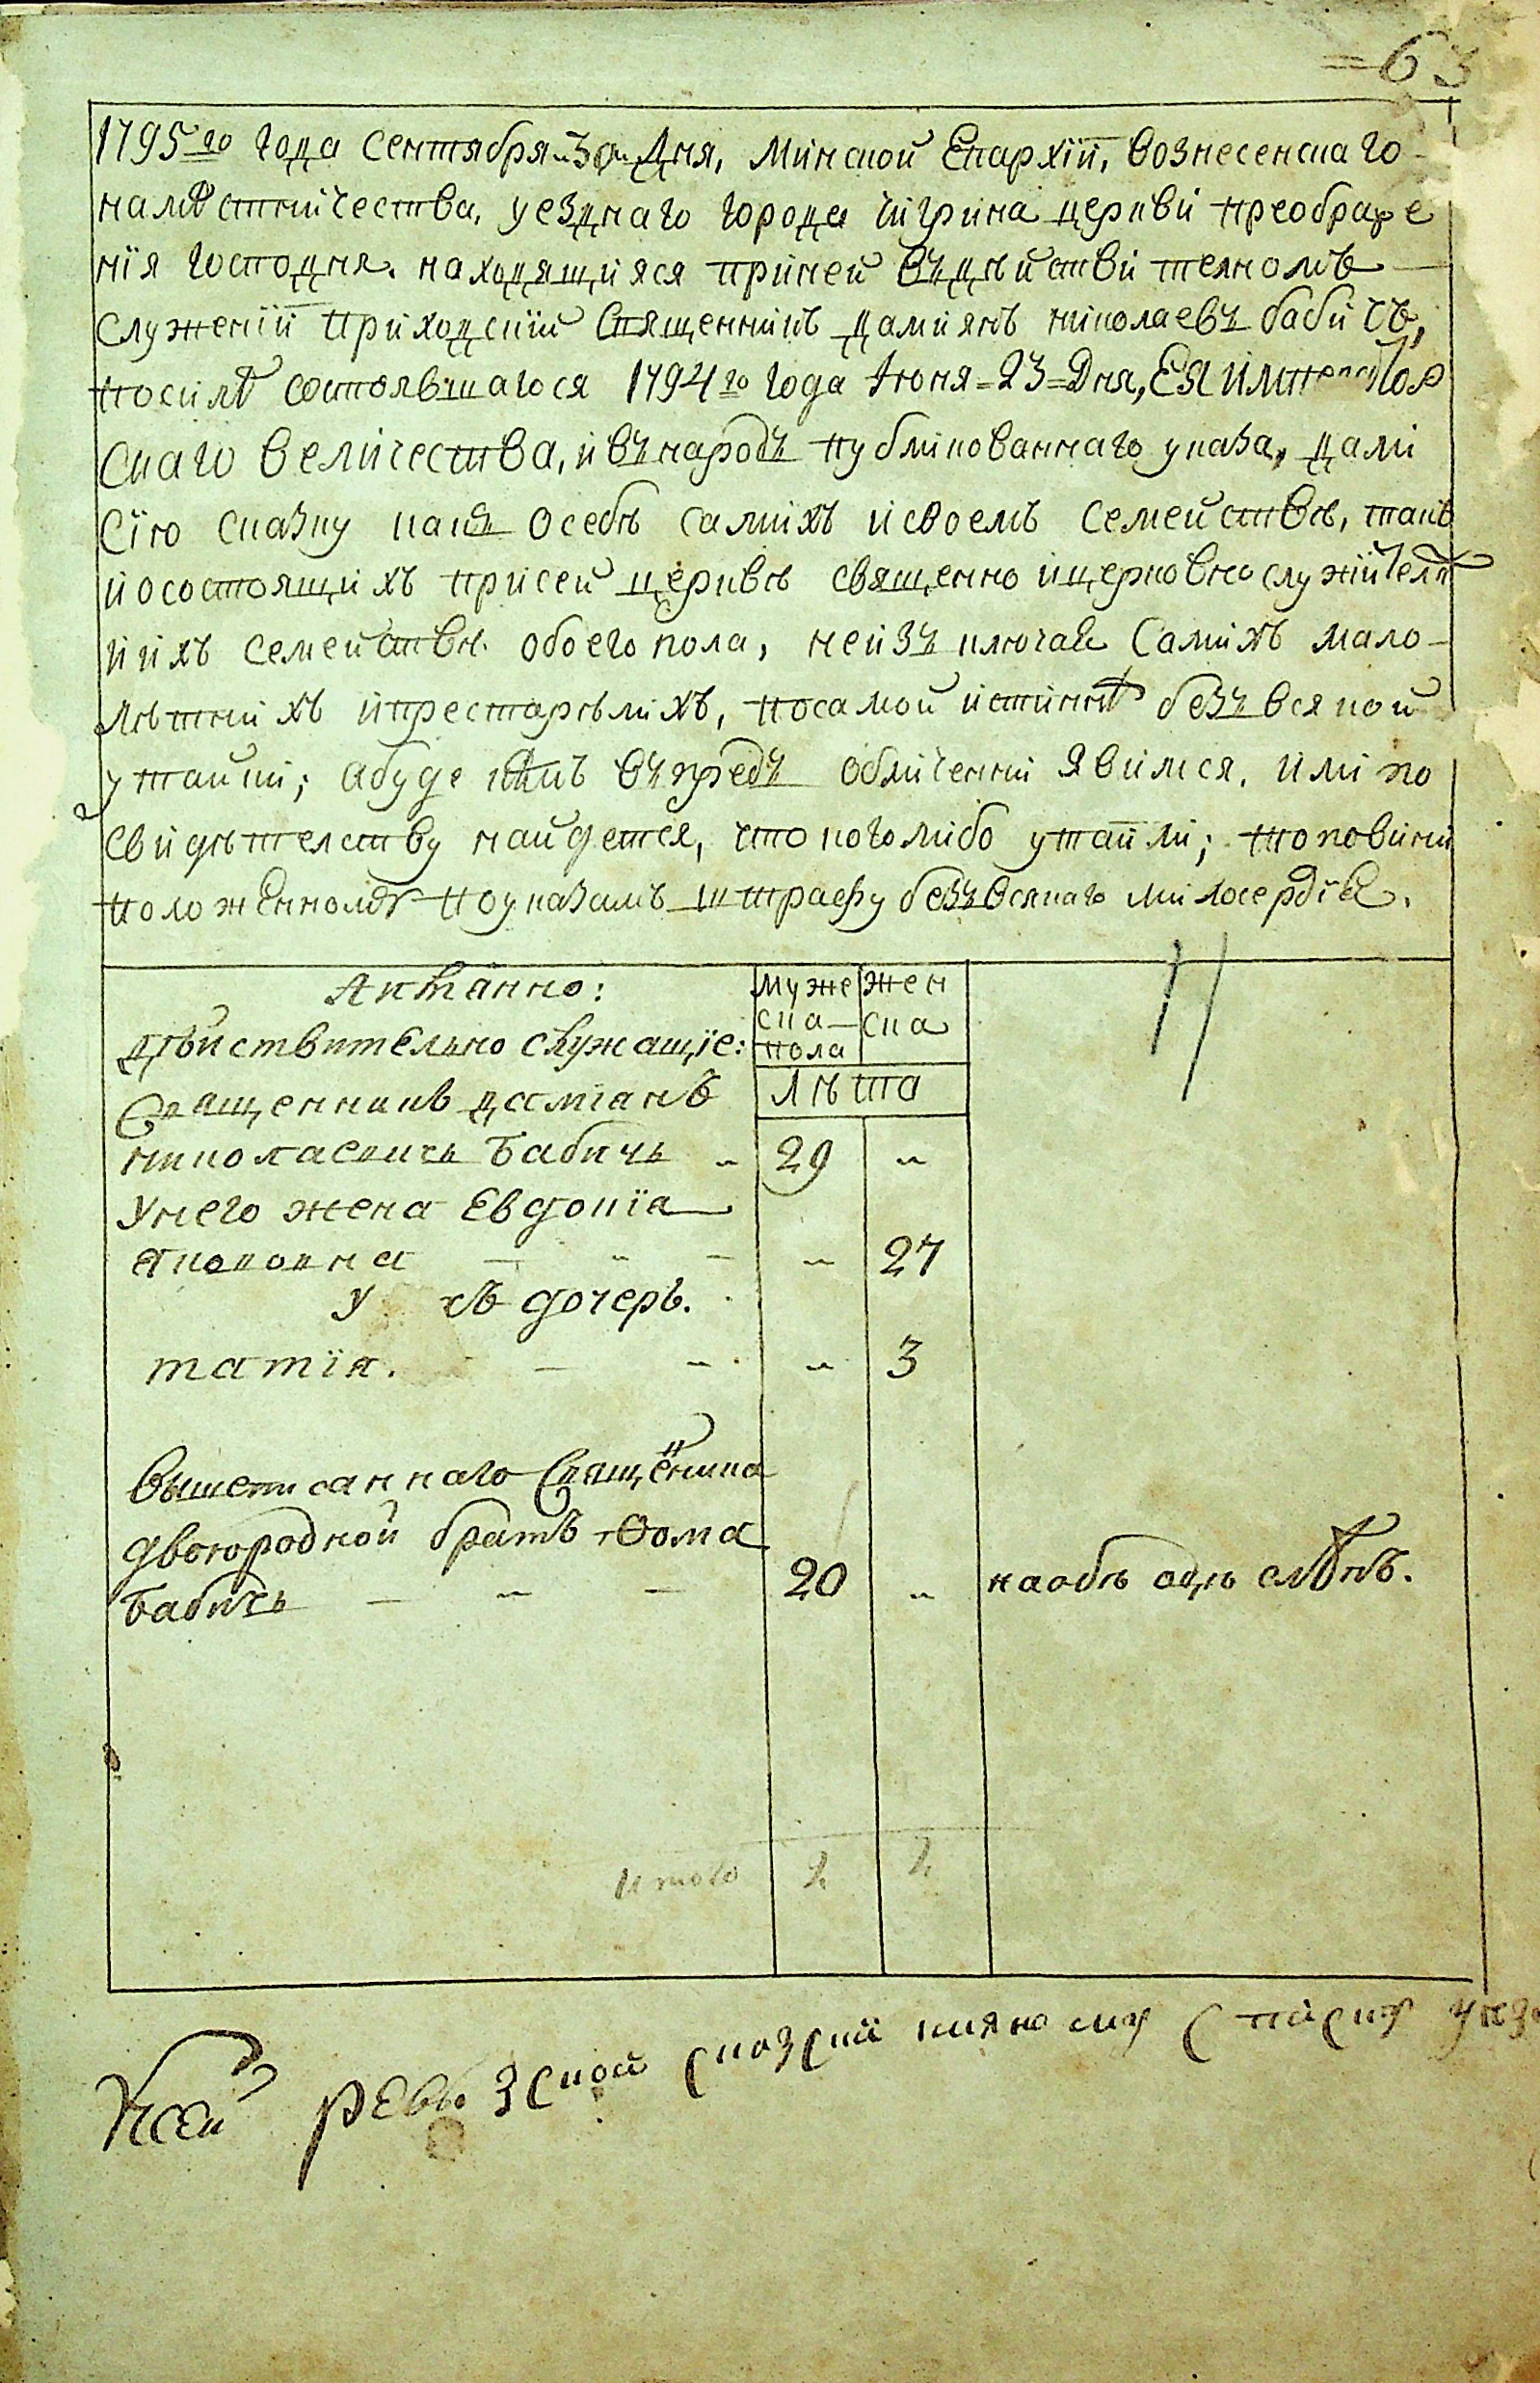 =63
1795го года сентября 30 дня, Минской Епархїи, вознесенскаго
намѣстничества, уезднаго города чигрина церкви преображе
нїя господня. находящийся приней въдѣйствителномъ
служенїи приходскїй священникъ дамиянъ николаевъ бабичъ,
посилѣ состоявшагося 1794го года Июня=23=Дня, ЕЯ Император
скаго величества, ивънародъ публикованнаго указа, дали
сїю сказку какъ осебѣ самихъ исвоемъ семействѣ, такъ
иосостоящихъ присей церквѣ священно ицерковнослужителѣ
ииихъ семействѣ обоего пола, неизъключая самихъ мало-
лѣтнихъ ипрестарѣлихъ, посамой истиннѣ безъвсякой
утайки; абуде въпредъ обличенни явимся, или по
свидѣтелству найдется, что коголибо утаили; то повинни
положенному поуказамъ штрафу безъвсякаго милосердїя.
Аимянно:
муже
ска-
пола
жен
ска
дѣйствительно служащїе:
Лѣта
Священникъ дамїанъ
николаевичь бабичь 29 „
Унего жена Евдокїя
„ 27
у хъ дочерь.
татїя. „ 3
вышеписаннаго Священника
двоюродной братъ Ѳома
бабичь 20 „ наобѣ оцѣ слѣпъ.
итого 2 2
Ксей ревизской